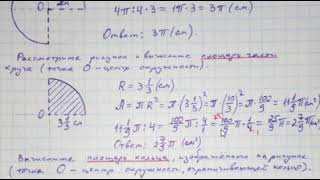 2 см
4π : 4 · 3 = 1π · 3 = 3π (см)
Ответ: 3π (см).
Рассмотрите рисунок и вычислите площадь части
круга (точка O – центр окружности).
R = 3 1/3 (см)
A = π R² = π (3 1/3)² = π (10/3)² = π · 100/9 = 11 1/9 π (см²)
11 1/9 π : 4 = 100/9 π : 4/1 = 100/9 π · 1/4 = 25/9 π = 2 7/9 π (см²)
3 1/3 см
Ответ: 2 7/9 π (см²)
Вычислите площадь кольца, изображённого на рисунке
(точка O – центр окружности, ограничивающей кольцо).